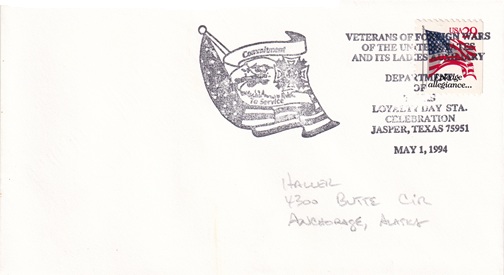 Commitment
To Service
VETERANS OF FOREIGN WARS
OF THE UNITED STATES
AND ITS LADIES AUXILIARY
DEPARTMENT
OF
LOYALTY DAY STA.
CELEBRATION
JASPER, TEXAS 75951
MAY 1, 1994
USA 29
I pledge
allegiance...
HALLER
4300 BUTTE CIR
ANCHORAGE, ALASKA